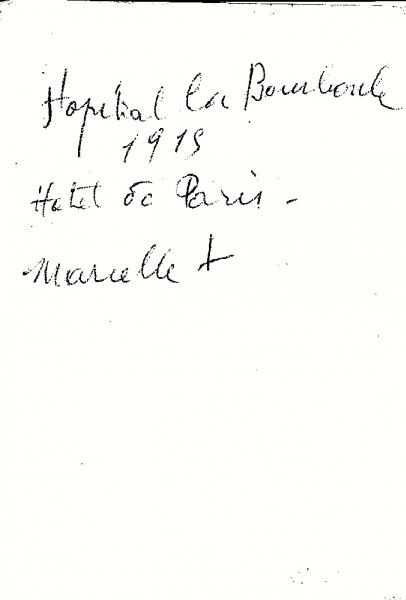 Hopital La Bourboule
1915
Hotel de Paris -
Marcelle +